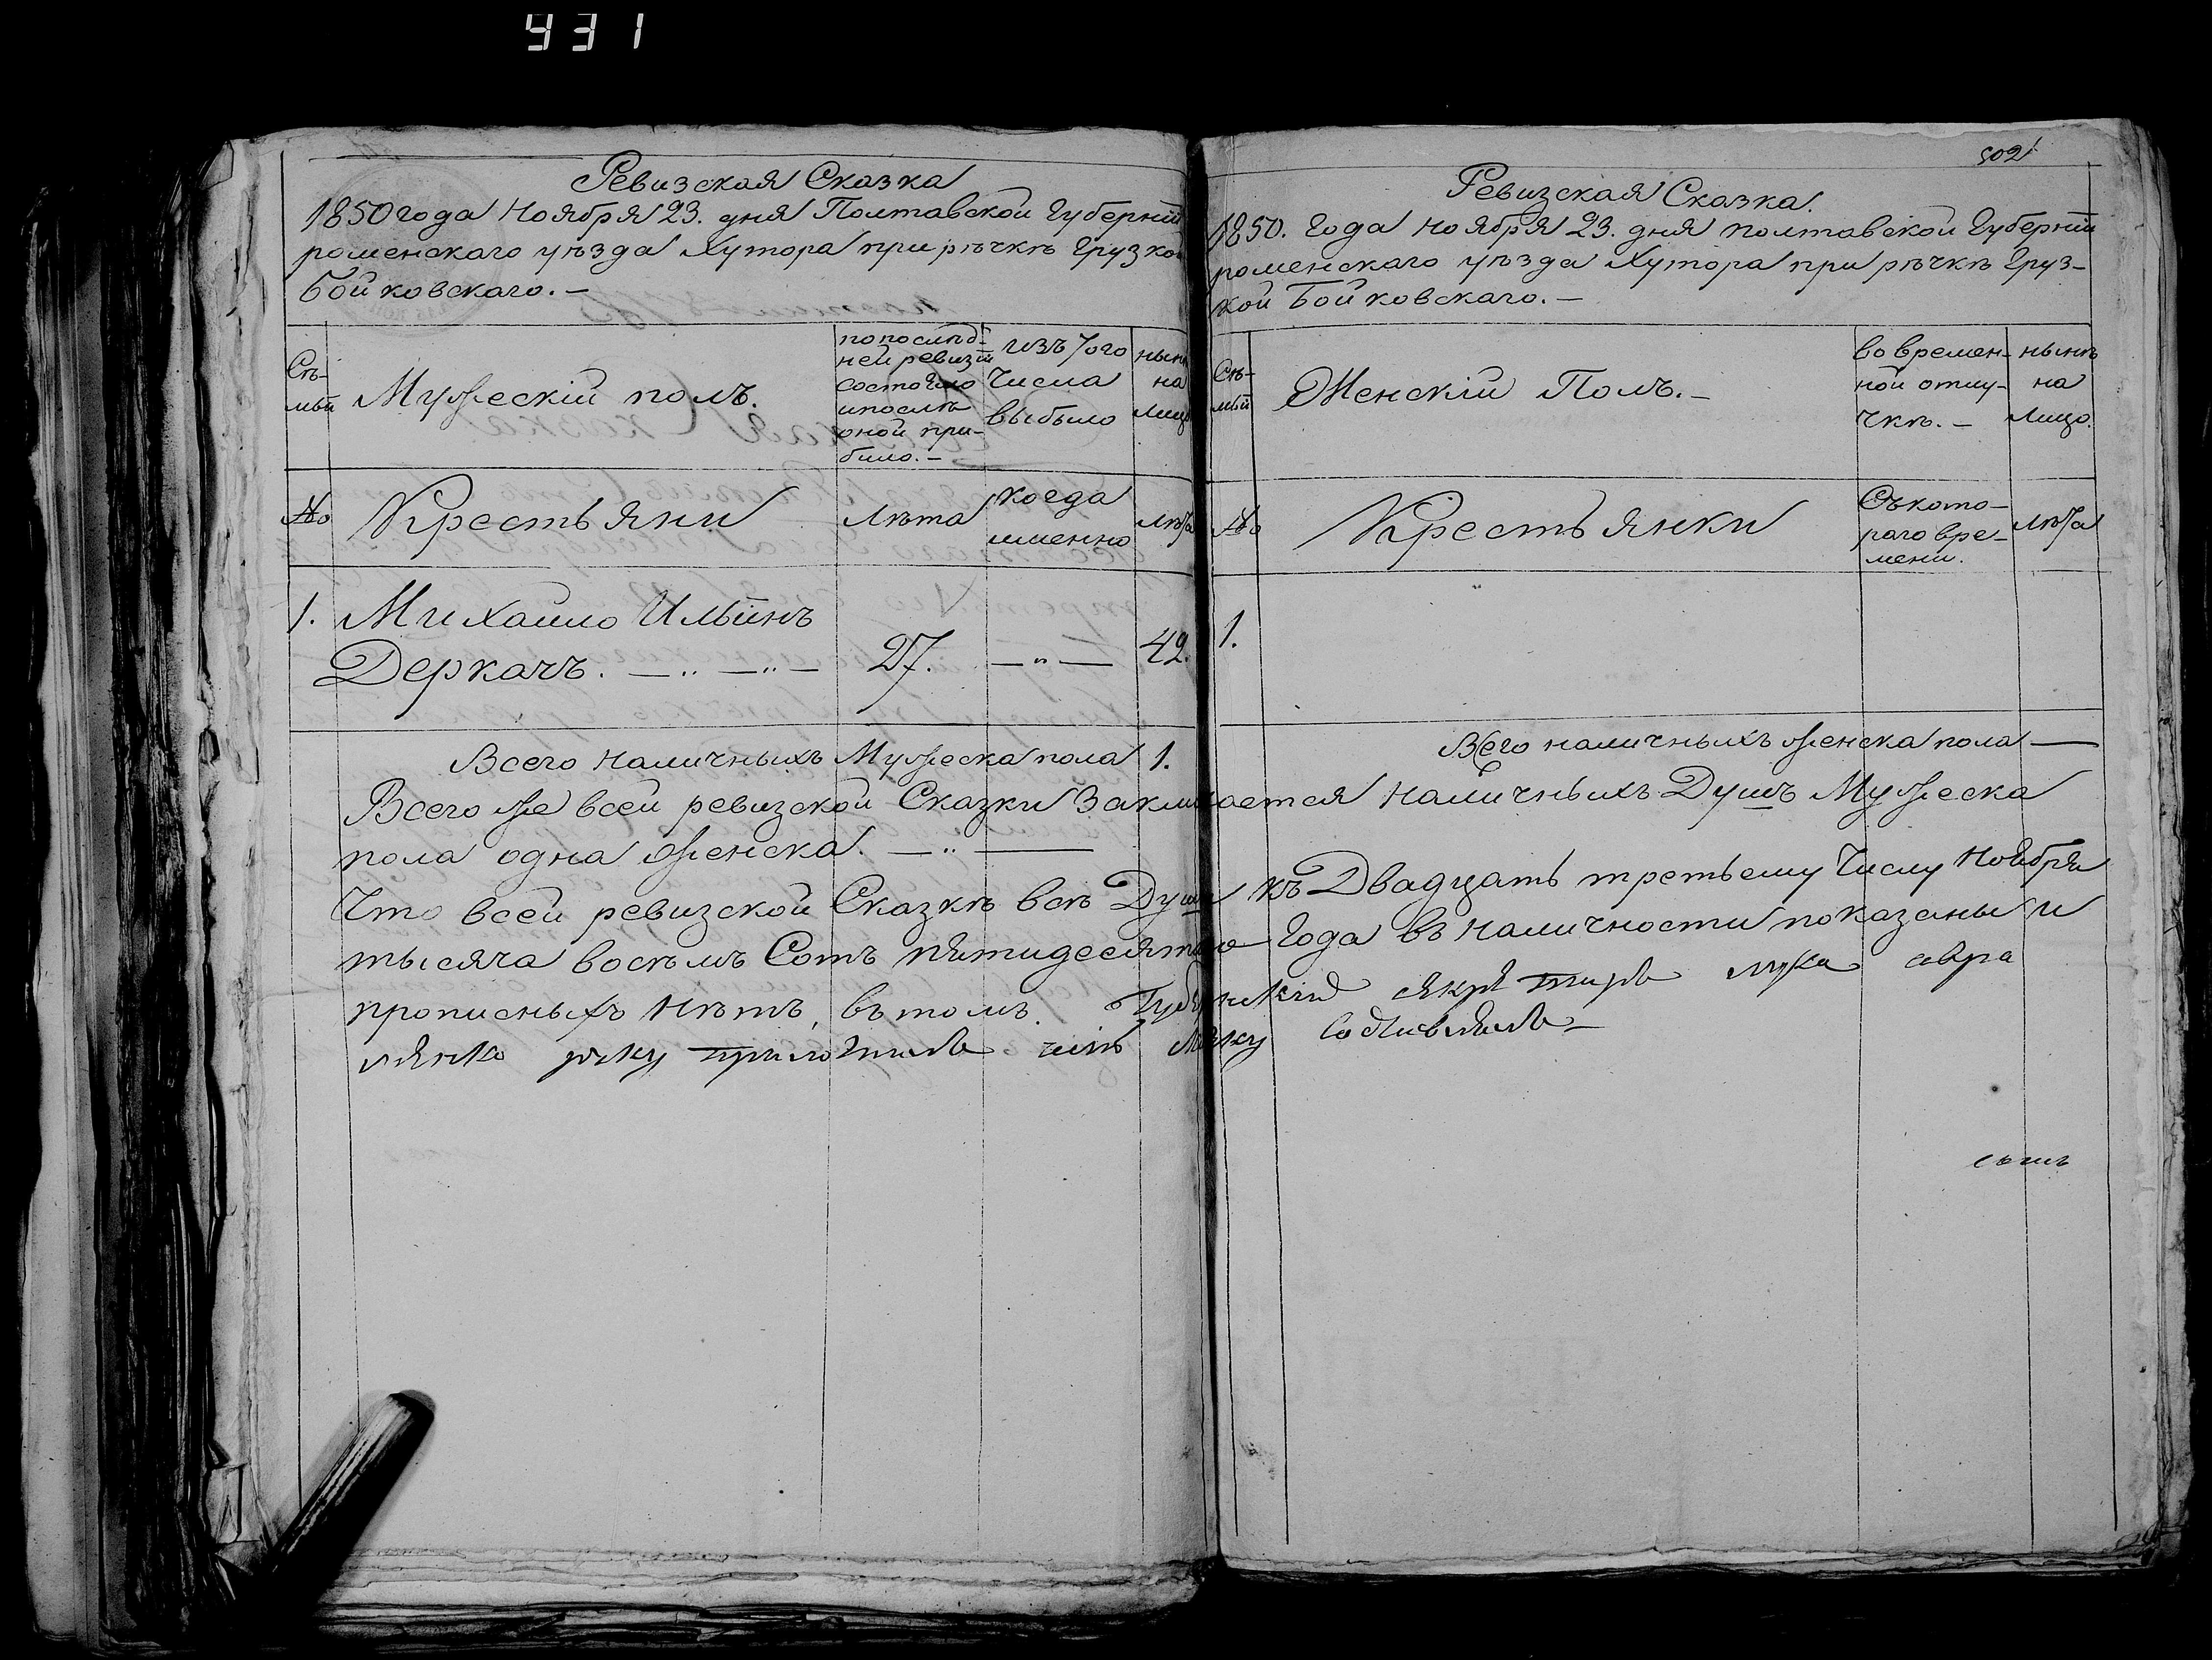 931
Ревизская Сказка
1850 года Ноября 23. дня Полтавской Губерніи
роменскаго уѣзда Хутора при рѣчкѣ Грузкой
Бойковскаго. —
Сѣ-
мьи
Мужескій полъ.
по послѣд-
ней ревизіи
состояло
и послѣ
оной при-
было. —
изъ того
числа
выбыло
нынѣ
на
лицо
№
Крестьяни
Лѣта
когда
именно
лѣта
1. Михайло Ильинъ
Деркачъ. — „ — „ — 27. — „ — 42.
Всего наличныхъ Мужеска пола 1.
502
Ревизская Сказка.
1850. Года ноября 23. дня полтавской Губерніи
роменскаго уѣзда Хутора при рѣчкѣ Груз-
кой Бойковскаго. —
Сѣ-
мьи
Женскій Полъ. —
во времен-
ной отлу-
чкѣ. —
нынѣ
на
лицо.
№
Крестьянки
Съ кото-
раго вре-
мени.
лѣта
1.
Всего наличныхъ женска пола —
Всего же всей ревизской Сказки Заключается наличныхъ Душъ Мужеска
пола одна женска. — „ —
Что всей ревизской Сказкѣ всѣ Души къ Двадцать третьему Числу Ноября
тысяча восѣмъ Сотъ пятидесятаго Года въ наличности показаны и
прописныхъ нѣтъ, въ томъ.
руку приложилъ